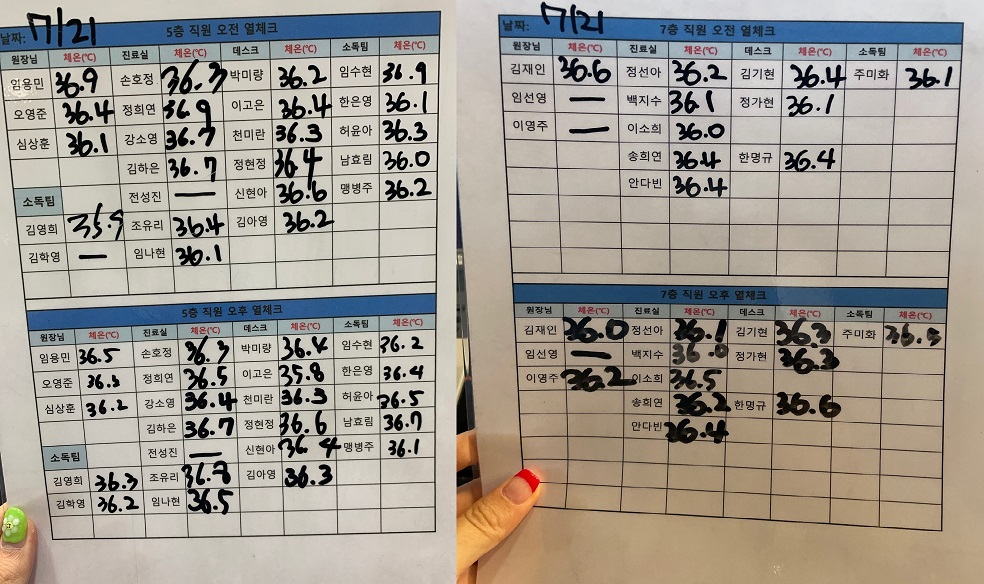 날짜: 7/21
5층 직원 오전 열체크
원장님 체온(℃) 진료실 체온(℃) 데스크 체온(℃) 소독팀 체온(℃)
임용민 36.9 손호정 36.3 박미량 36.2 임수현 36.9
오영준 36.4 정희연 36.9 이고은 36.4 한은영 36.1
심상훈 36.1 강소영 36.7 천미란 36.3 허윤아 36.3
김하은 36.7 정현정 36.4 남효림 36.0
소독팀 전성진 — 신현아 36.6 맹병주 36.2
김영희 35.9 조유리 36.4 김아영 36.2
김학영 — 임나현 36.1
5층 직원 오후 열체크
원장님 체온(℃) 진료실 체온(℃) 데스크 체온(℃) 소독팀 체온(℃)
임용민 36.5 손호정 36.3 박미량 36.4 임수현 36.2
오영준 36.5 정희연 36.5 이고은 35.8 한은영 36.4
심상훈 36.2 강소영 36.4 천미란 36.3 허윤아 36.5
김하은 36.7 정현정 36.6 남효림 36.7
소독팀 전성진 — 신현아 36.4 맹병주 36.1
김영희 36.3 조유리 36.8 김아영 36.3
김학영 36.2 임나현 36.5
날짜: 7/21
7층 직원 오전 열체크
원장님 체온(℃) 진료실 체온(℃) 데스크 체온(℃) 소독팀 체온(℃)
김재인 36.6 정선아 36.2 김기현 36.4 주미화 36.1
임선영 — 백지수 36.1 정가현 36.1
이영주 — 이소희 36.0
송희연 36.4 한명규 36.4
안다빈 36.4
7층 직원 오후 열체크
원장님 체온(℃) 진료실 체온(℃) 데스크 체온(℃) 소독팀 체온(℃)
김재인 36.0 정선아 36.1 김기현 36.3 주미화 36.5
임선영 — 백지수 36.0 정가현 36.3
이영주 36.2 이소희 36.5
송희연 36.2 한명규 36.6
안다빈 36.4